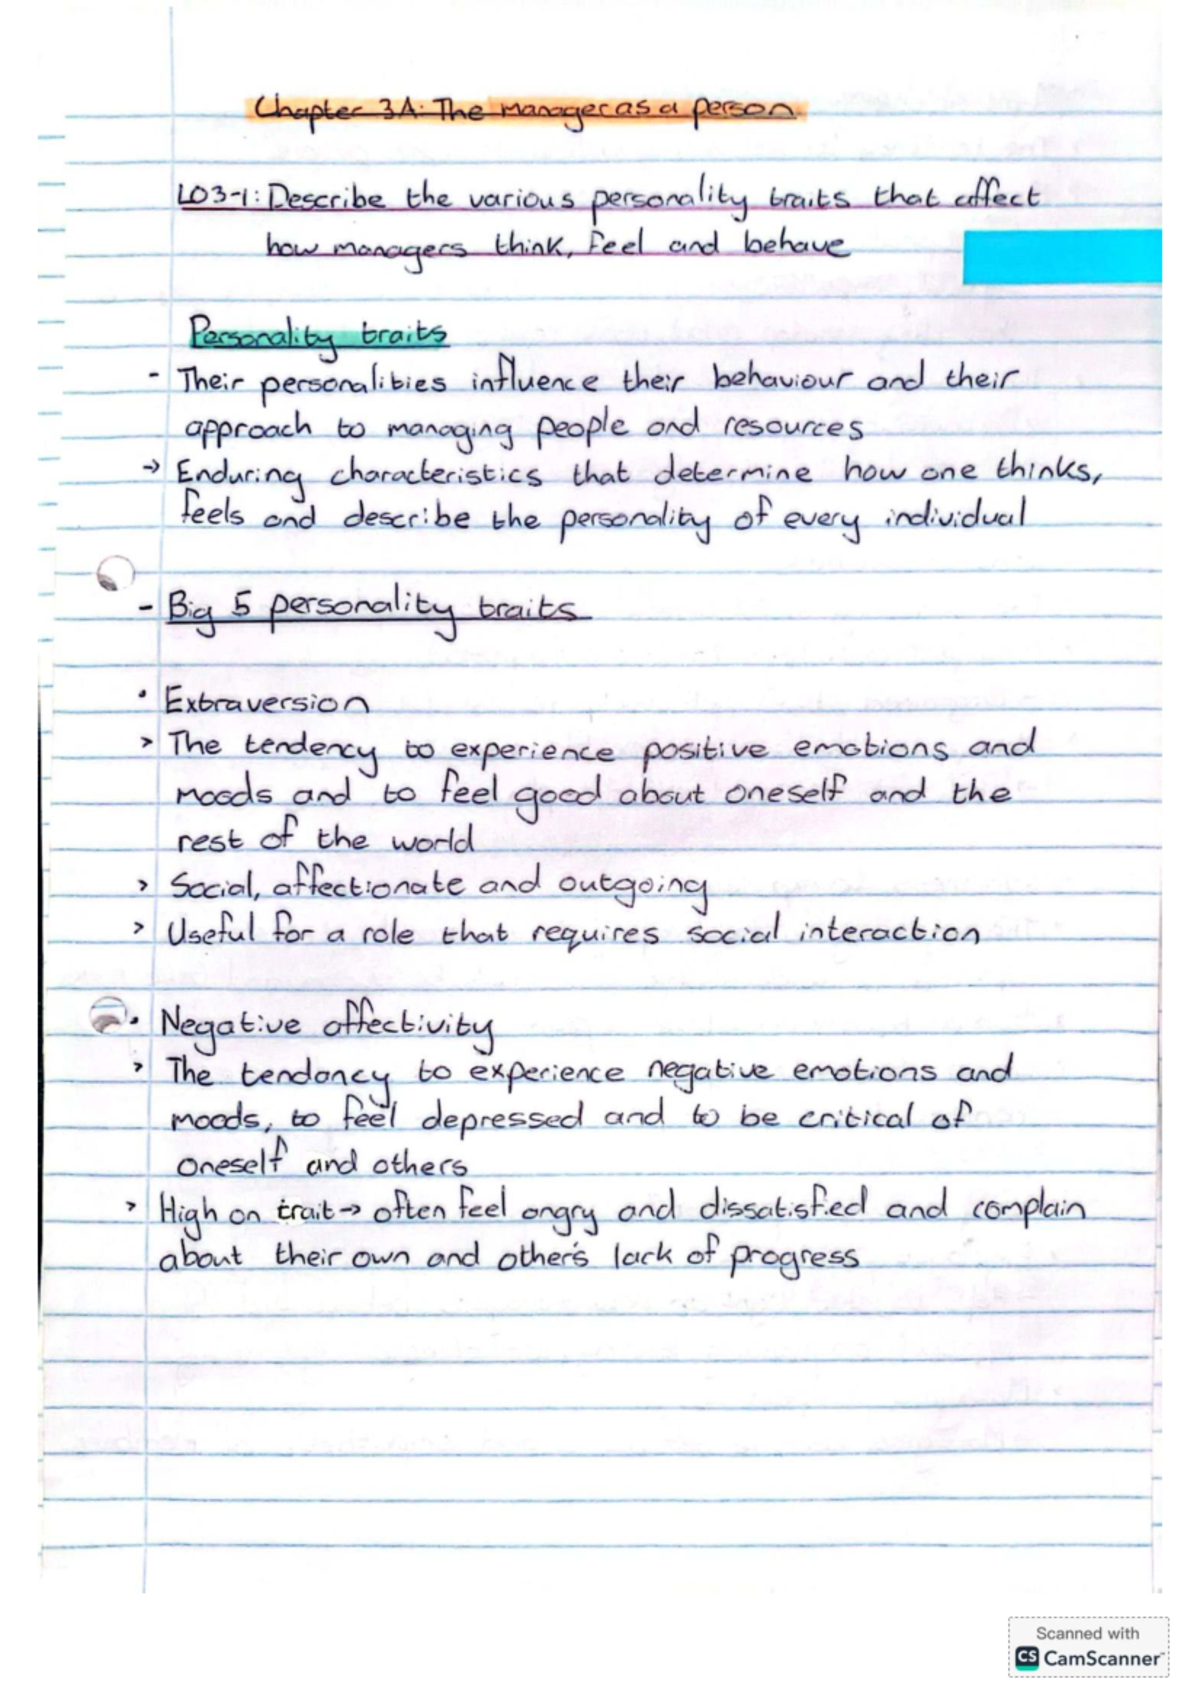 Chapter 3A: The manager as a person.
LO3-1: Describe the various personality traits that affect
how managers think, feel and behave
Personality traits
- Their personalities influence their behaviour and their
approach to managing people and resources
→ Enduring characteristics that determine how one thinks,
feels and describe the personality of every individual
- Big 5 personality traits
• Extraversion
> The tendency to experience positive emotions and
moods and to feel good about oneself and the
rest of the world
> Social, affectionate and outgoing
> Useful for a role that requires social interaction
• Negative affectivity
> The tendancy to experience negative emotions and
moods, to feel depressed and to be critical of
oneself and others
> High on trait → often feel angry and dissatisfied and complain
about their own and other's lack of progress
Scanned with
CS CamScanner